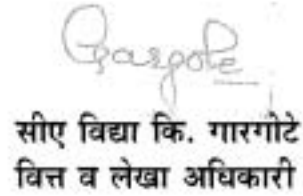 Gargote
सीए विद्या कि. गारगोटे
वित्त व लेखा अधिकारी